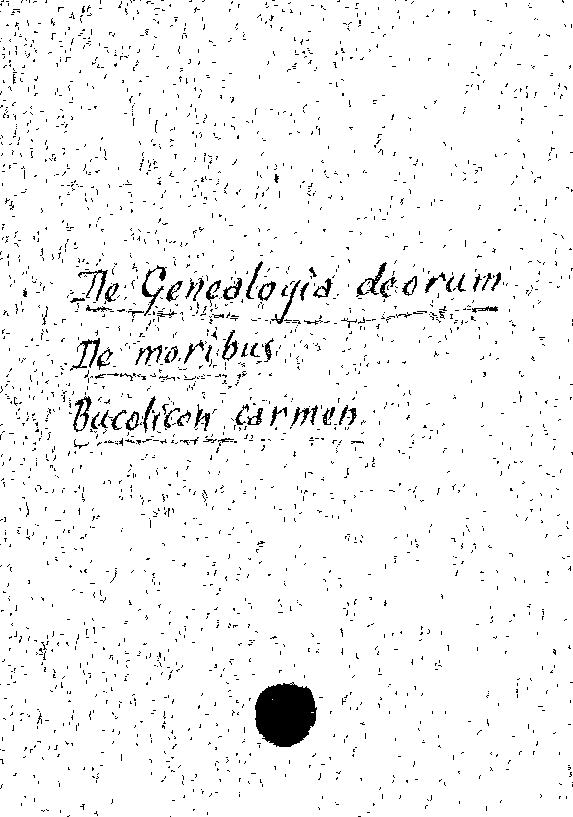 De Genealogia deorum
De moribus
Bucolicon carmen